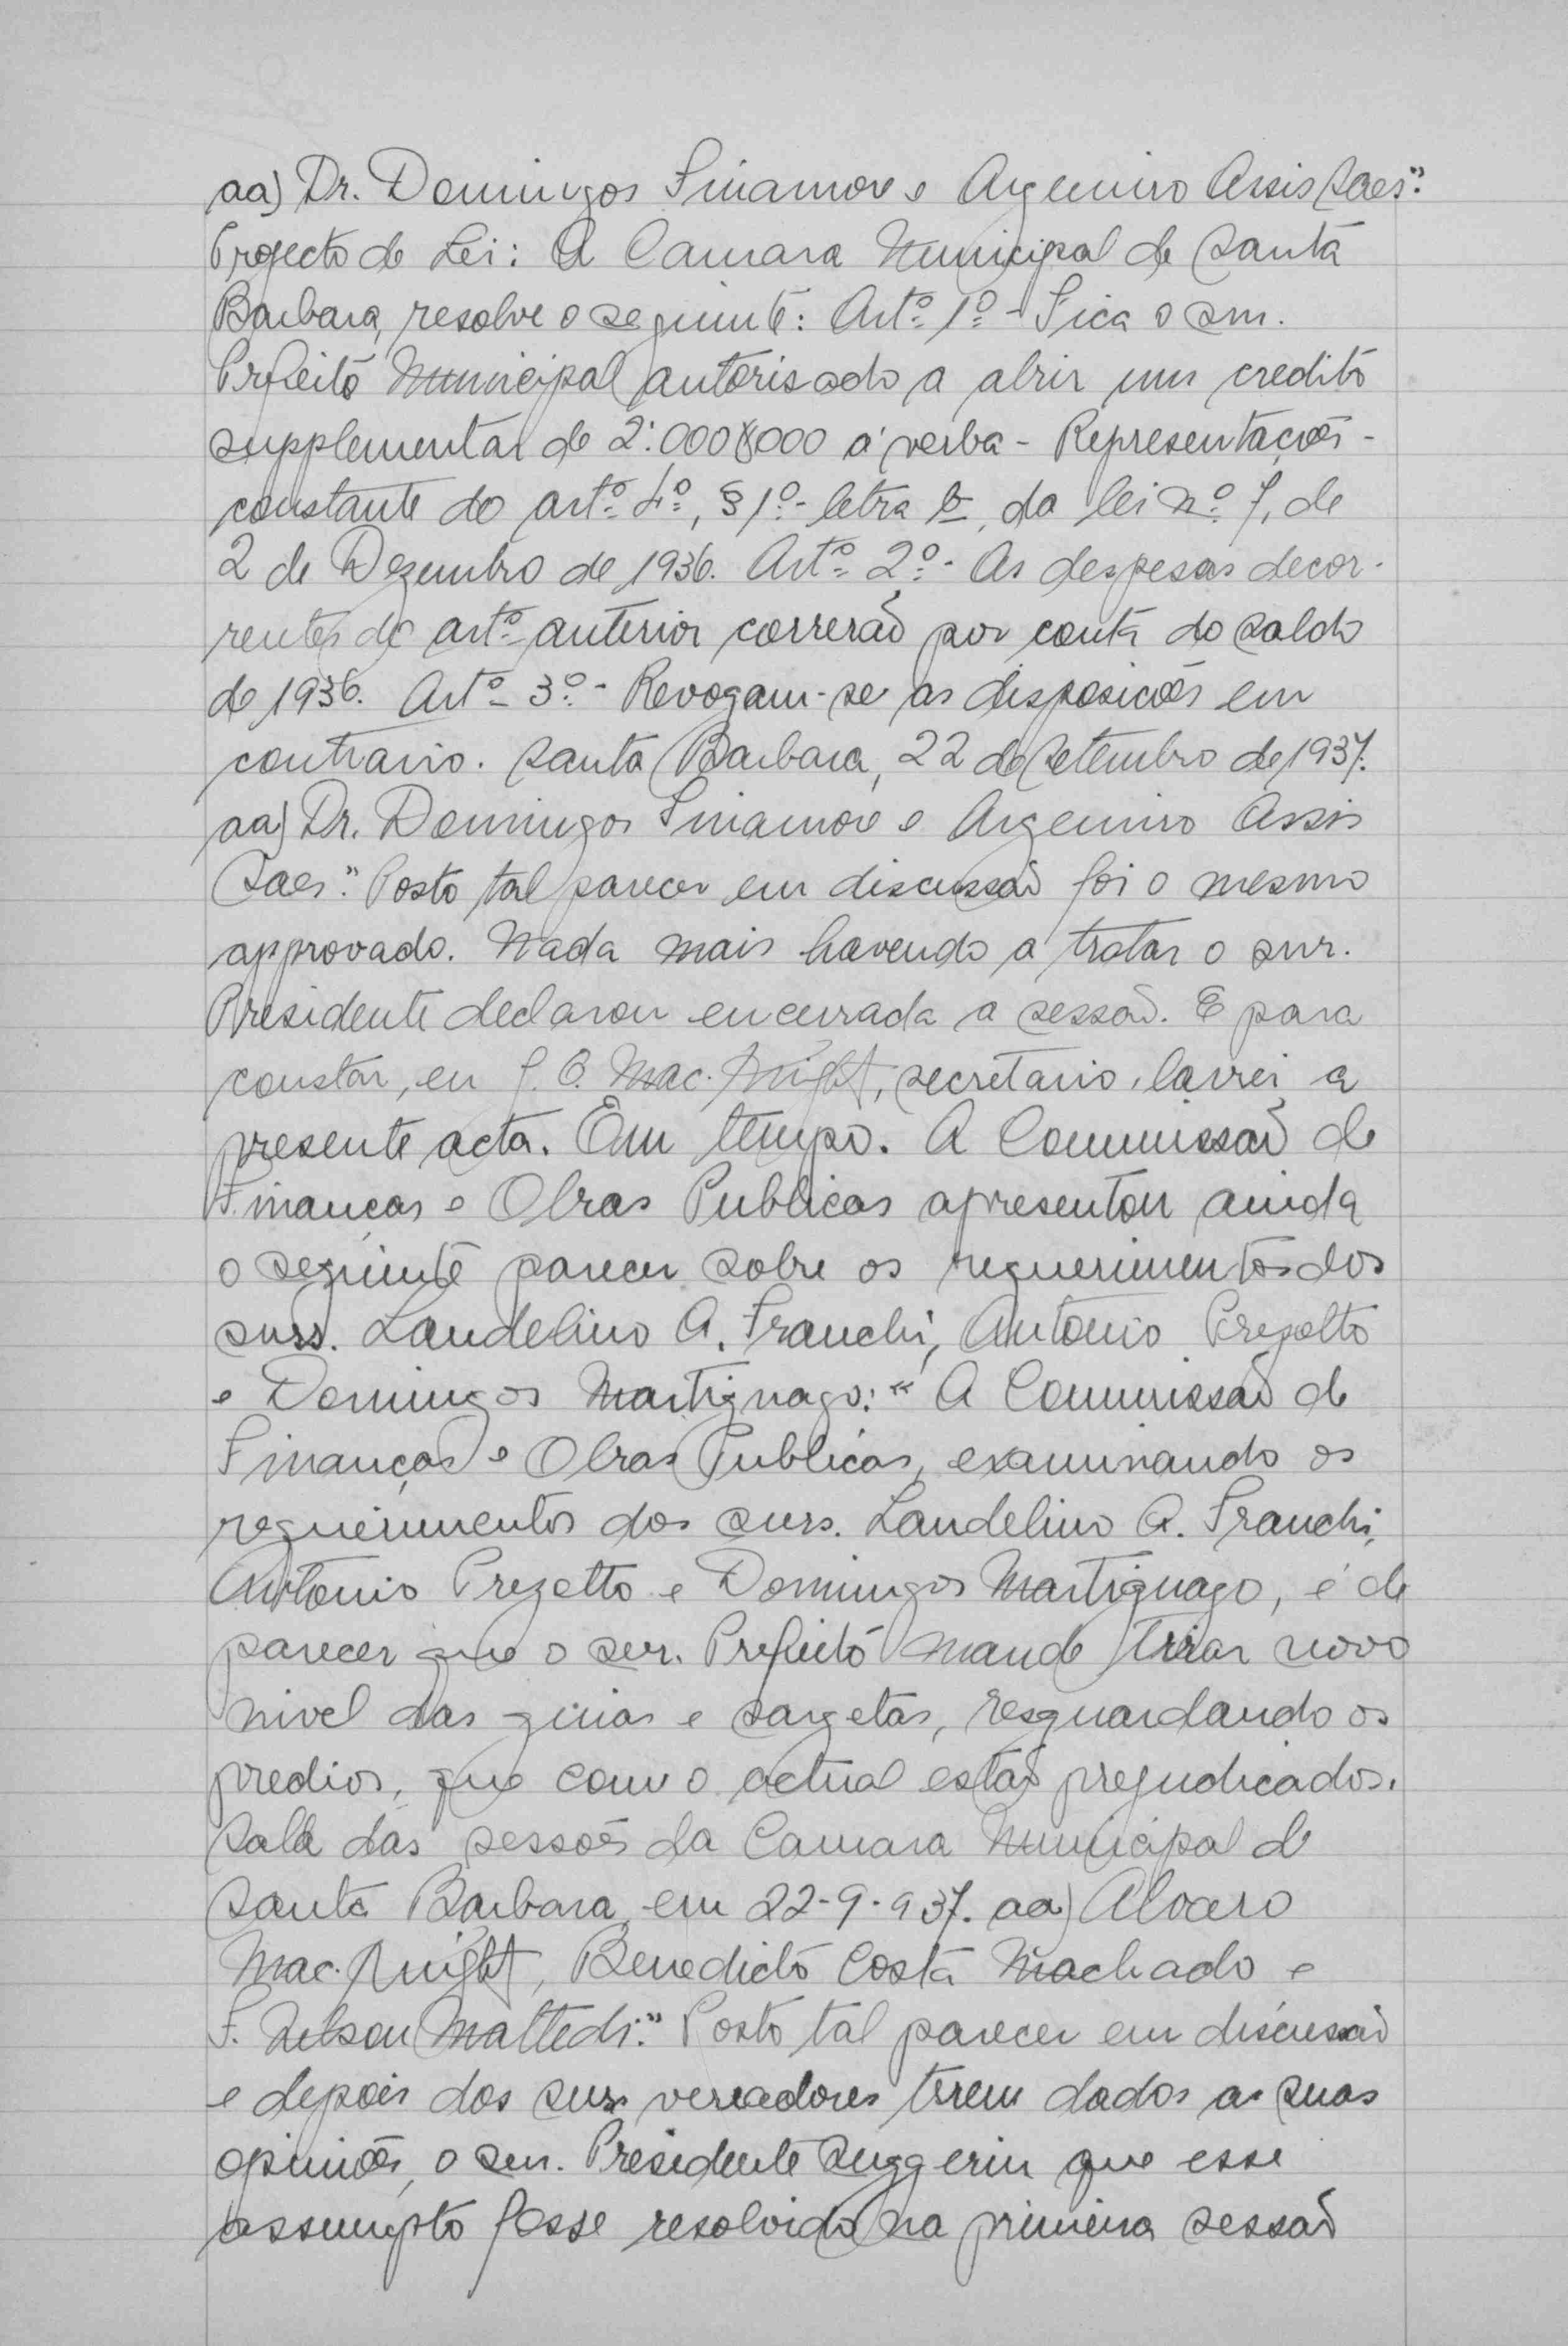 aa) Dr. Domingos Finamore e Argemiro Assis Saes."
Projecto de Lei: A Camara Municipal de Santa
Barbara, resolve o seguinte: Artº 1º - Fica o snr.
Prefeito Municipal autorisado a abrir um credito
supplementar de 2:000$000 á verba - Representações -
constante do artº 4º, § 1º - letra b, da lei nº 7, de
2 de Dezembro de 1936. Artº 2º - As despesas decor-
rentes do artº anterior correrão por conta do saldo
de 1936. Artº 3º - Revogam-se as disposições em
contrario. Santa Barbara, 22 de Setembro de 1937.
aa) Dr. Domingos Finamore e Argemiro Assis
Saes." Posto tal parecer em discussão foi o mesmo
approvado. Nada mais havendo a tratar o snr.
Presidente declarou encerrada a sessão. E para
constar, eu J. O. Mac-Knight, secretario, lavrei a
presente acta. Em tempo. A Commissão de
Finanças e Obras Publicas apresentou ainda
o seguinte parecer sobre os requerimentos dos
snrs. Laudelino A. Franchi, Antonio Prezotto
e Domingos Martignago: "A Commissão de
Finanças e Obras Publicas, examinando os
requerimentos dos snrs. Laudelino A. Franchi,
Antonio Prezotto e Domingos Martignago, é de
parecer que o snr. Prefeito mande tirar novo
nivel das guias e sargetas, resguardando os
predios, que com o actual estão prejudicados.
Sala das sessões da Camara Municipal de
Santa Barbara, em 22-9-937. aa) Alvaro
Mac-Knight, Benedicto Costa Machado e
F. Nelson Mattedi." Posto tal parecer em discussão
e depois dos snrs vereadores terem dados as suas
opiniões, o snr. Presidente suggeriu que esse
assumpto fosse resolvido na primeira sessão